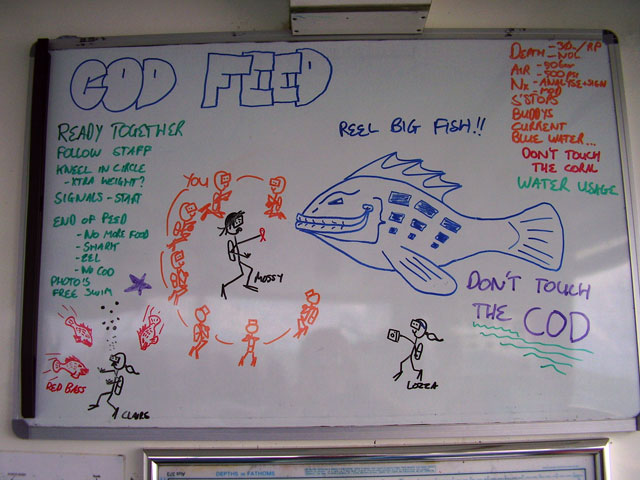 COD FEED
READY TOGETHER
FOLLOW STAFF
KNEEL IN CIRCLE
- XTRA WEIGHT?
SIGNALS - START
END OF FEED
- NO MORE FOOD
- SHARK
- EEL
- NO COD
PHOTO'S
FREE SWIM
RED BASS
CLAIRE
YOU
MOSSY
REEL BIG FISH!!
LOZZA
DEATH - 30m/RP
- NDL
AIR - 50bar
- 500 PSI
Nx - ANALYSE + SIGN
- MOD
S'STOPS
BUDDYS
CURRENT
BLUE WATER...
DON'T TOUCH
THE CORAL
WATER USAGE
DON'T TOUCH
THE COD
DEPTHS IN FATHOMS